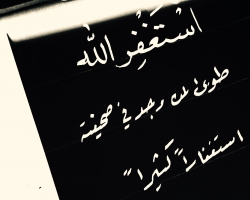 اسْتَغْفِرُ الله
طوبى لمن وجد في صحيفته
استغفاراً كثيراً